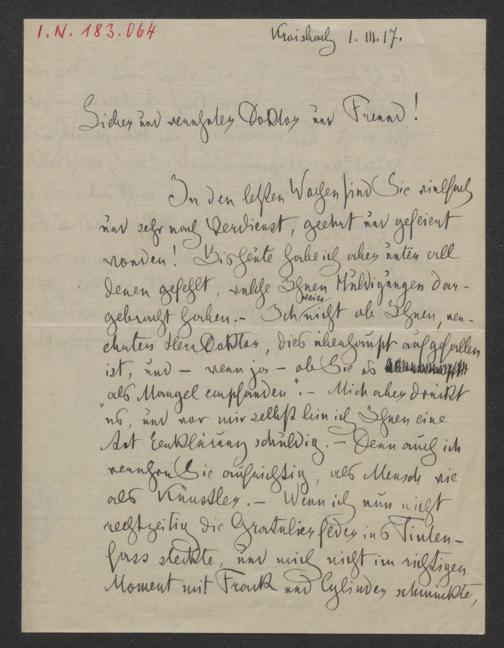 I.N. 183.064
Kraisbach 1.III.17.
Lieber und verehrter Doktor und Freund!
In den letzten Wochen sind Sie vielfach
und sehr nach Verdienst, geehrt und gefeiert
worden! Bis heute habe ich aber unter all
denen gefehlt, welche Ihnen Huldigungen dar-
gebracht haben. – Ich weiss nicht ob Ihnen, ver-
ehrter Herr Doktor, dies überhaupt aufgefallen
ist, und – wenn ja – ob Sie es
"als Mangel empfanden". – Mich aber drückt
es, und vor mir selbst bin ich Ihnen eine
Art Erklärung schuldig. – Denn auch ich
verehre Sie aufrichtig, als Mensch wie
als Künstler. – Wenn ich nun nicht
rechtzeitig die Gratulierfeder ins Tinten-
fass steckte, und mich nicht im richtigen
Moment mit Frack und Cylinder schmückte,